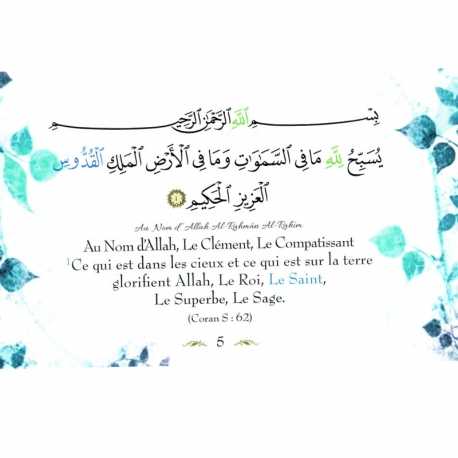 بِسْمِ اللَّهِ الرَّحْمَٰنِ الرَّحِيمِ
يُسَبِّحُ لِلَّهِ مَا فِي السَّمَٰوَٰتِ وَمَا فِي الْأَرْضِ الْمَلِكِ الْقُدُّوسِ
الْعَزِيزِ الْحَكِيمِ ١
Au Nom d'Allah Al-Rahmân Al-Rahim
Au Nom d'Allah, Le Clément, Le Compatissant
1Ce qui est dans les cieux et ce qui est sur la terre
glorifient Allah, Le Roi, Le Saint,
Le Superbe, Le Sage.
(Coran S : 62)
5